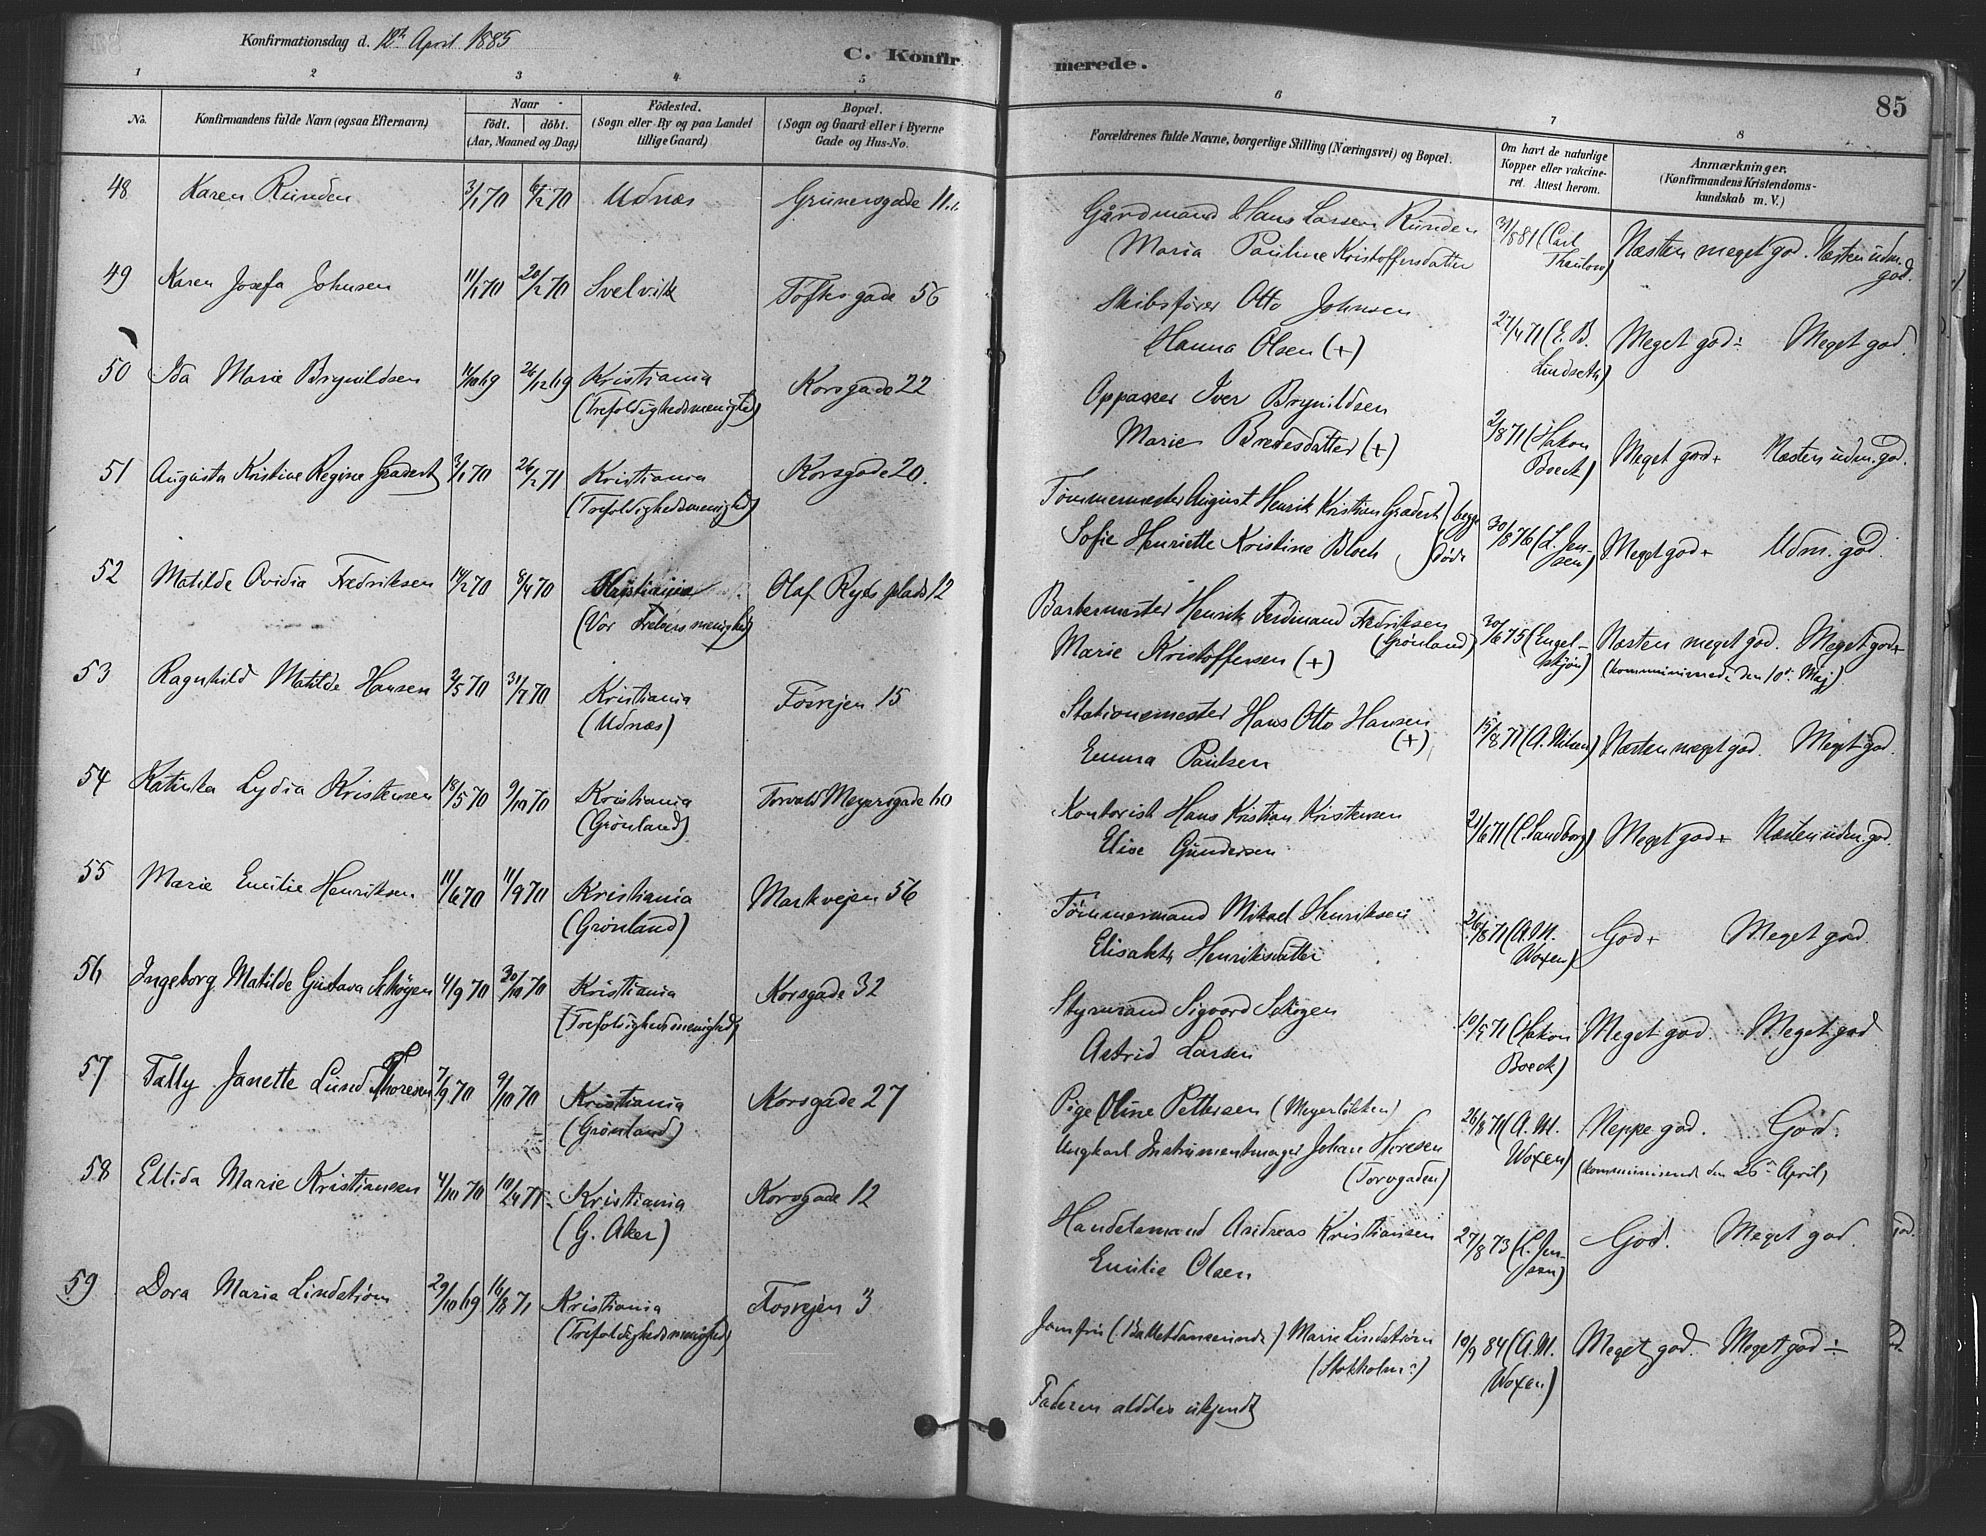 Konfirmationsdag d. 12te April 1885
C. Konfirmerede.
85
1 2 3 4 5 6 7 8
No. Konfirmandens fulde Navn (ogsaa Efternavn)
Naar
födt. döbt.
(Aar, Maaned og Dag)
Födested.
(Sogn eller By og paa Landet
tillige Gaard)
Bopæl.
(Sogn og Gaard eller i Byerne
Gade og Hus-No.
Forældrenes fulde Navne, borgerlige Stilling (Næringsvei) og Bopæl.
Om havt de naturlige
Kopper eller vakcine-
ret. Attest herom.
Anmærkninger.
(Konfirmandens Kristendoms-
kundskab m. V.)
48 Karen Runden 3/1 70 6/2 70 Udnæs Grünersgade 11
Gårdmand Hans Larsen Runden 31/8 81 (Carl Næsten meget god. Næsten udm.
Maria Pauline Kristoffersdatter Thaulow) god.
49 Karen Josefa Johnsen 11/1 70 20/2 70 Svelvik Toftesgade 56
Skibsfører Otto Johnsen 27/4 71 (E. B. Meget god÷ Meget god.
Hanna Olsen (+) Lindseth)
50 Ida Marie Brynildsen 14/10 69 26/12 69 Kristiania Korsgade 22
(Trefoldighedsmenighed)
Oppasser Iver Brynildsen 2/8 71 (Hakon Meget god+ Næsten udm. god.
Marie Bredesdatter (+) Boeck)
51 Augusta Kristine Regine Gradert 3/1 70 26/2 71 Kristiania Korsgade 20.
(Trefoldighedsmenighed)
Tømmermester August Henrik Kristian Gradert } begge 30/8 76 (L. Jen- Meget god+ Udm. god.
Sofie Henriette Kristine Bloch } døde sen)
52 Matilde Ovidia Fredriksen 14/2 70 8/4 70 Kristiania Olaf Ryes plads 12
(Vor Frelsers menighed)
Barbermester Henrik Ferdinand Fredriksen 30/6 75 (Engel- Næsten meget god. Meget god+
(Grønland)
Marie Kristoffersen (+) skjøn) (kommunicerede den 10de Maj)
53 Ragnhild Matilde Hansen 2/5 70 31/7 70 Kristiania Fosvejen 15
(Udnæs)
Stationsmester Hans Otto Hansen 15/8 71 (A. Nilsen) Næsten meget god. Meget god.
(+)
Emma Paulsen
54 Katinka Lydia Kristensen 18/5 70 9/10 70 Kristiania Torvald Meyersgade 60
(Grønland)
Kontorist Hans Kristian Kristensen 21/6 71 (C. Sandborg) Meget god+ Næsten udm. god.
Elise Gundersen
55 Marie Emilie Henriksen 11/6 70 11/9 70 Kristiania Markvejen 56
(Grønland)
Tømmermand Mikael Henriksen 26/8 71 (A. M. God+ Meget god.
Elisabeth Henriksdatter Woxen)
56 Ingeborg Matilde Gustava Skøyen 4/9 70 30/10 70 Kristiania Korsgade 32
(Trefoldighedsmenighed)
Styrmand Sigvard Skøyen 10/5 71 (Hakon Meget god. Meget god
Astrid Larsen Boeck)
57 Tally Janette Lund Thoresen 7/9 70 9/10 70 Kristiania Korsgade 27
(Grønland)
Pige Oline Pettersen (Meyerløkken) 26/8 71 (A. M. Neppe god. God.
Ungkarl Instrumentmager Johan Thoresen Woxen) (kommunicerede den 26de April)
(Torvgaden)
58 Ellida Marie Kristiansen 4/10 70 10/4 71 Kristiania Korsgade 12
(G. Aker)
Handelsmand Andreas Kristiansen 27/8 73 (L. Jen- God. Meget god.
Emilie Olsen sen)
59 Dora Maria Lindstrøm 29/10 69 16/8 71 Kristiania Fosvejen 3
(Trefoldighedsmenighed)
Jomfru (Balletdanserinde) Marie Lindstrøm 10/9 84 (A. M. Meget god. Meget god÷
(Stokholm?) Woxen)
Faderen aldeles ukjendt